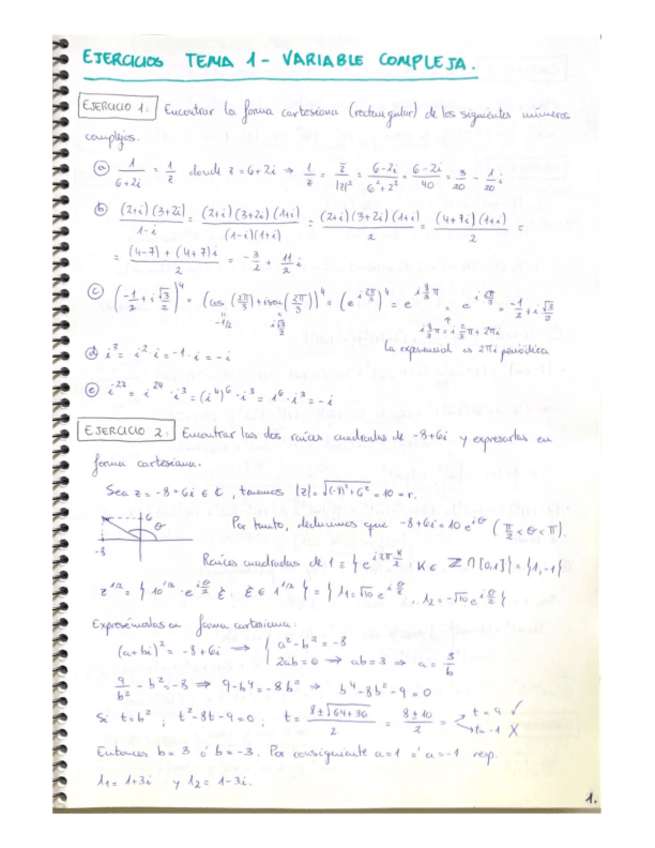 EJERCICIOS TEMA 1 - VARIABLE COMPLEJA.
EJERCICIO 1: Encontrar la forma cartesiana (rectangular) de los siguientes números
complejos.
(a) 1/(6+2i) = 1/z donde z = 6+2i ⇒ 1/z = z̄/|z|² = (6-2i)/(6²+2²) = (6-2i)/40 = 3/20 - 1/20 i
(b) (2+i)(3+2i)/(1-i) = (2+i)(3+2i)(1+i)/((1-i)(1+i)) = (2+i)(3+2i)(1+i)/2 = (4+7i)(1+i)/2 =
= ((4-7)+(4+7)i)/2 = -3/2 + 11/2 i
(c) (-1/2 + i √3/2)⁴ = (cos(2π/3) + i sen(2π/3))⁴ = (e^{i 2π/3})⁴ = e^{i 8/3 π} = e^{i 2π/3} = -1/2 + i √3/2
-1/2 i√3/2 i 8/3 π = i 2/3 π + 2πi
la exponencial es 2πi periódica
(d) i³ = i²·i = -1·i = -i
(e) i²⁷ = i²⁴·i³ = (i⁴)⁶·i³ = 1⁶·i³ = -i
EJERCICIO 2: Encontrar las dos raíces cuadradas de -8+6i y expresarlas en
forma cartesiana.
Sea z = -8+6i ∈ ℂ, tenemos |z| = √((-8)²+6²) = 10 = r.
6 θ -8
Por tanto, deducimos que -8+6i = 10 e^{iθ} (π/2 < θ < π).
Raíces cuadradas de 1 = { e^{i2π k/2} : K ∈ ℤ ∩ [0,1] } = {1,-1}
z^{1/2} = { 10^{1/2} · e^{i θ/2} ξ, ξ ∈ 1^{1/2} } = { λ₁ = √10 e^{i θ/2}, λ₂ = -√10 e^{i θ/2} }
Expresémoslas en forma cartesiana:
(a+bi)² = -8+6i ⇒ { a²-b² = -8
2ab = 6 ⇒ ab = 3 ⇒ a = 3/b
9/b² - b² = -8 ⇒ 9-b⁴ = -8b² ⇒ b⁴-8b²-9 = 0
Si t = b², t²-8t-9 = 0; t = (8±√(64+36))/2 = (8±10)/2 = t = 9 ✓
t = -1 X
Entonces b = 3 ó b = -3. Por consiguiente a = 1 ó a = -1 resp.
λ₁ = 1+3i y λ₂ = 1-3i.
1.